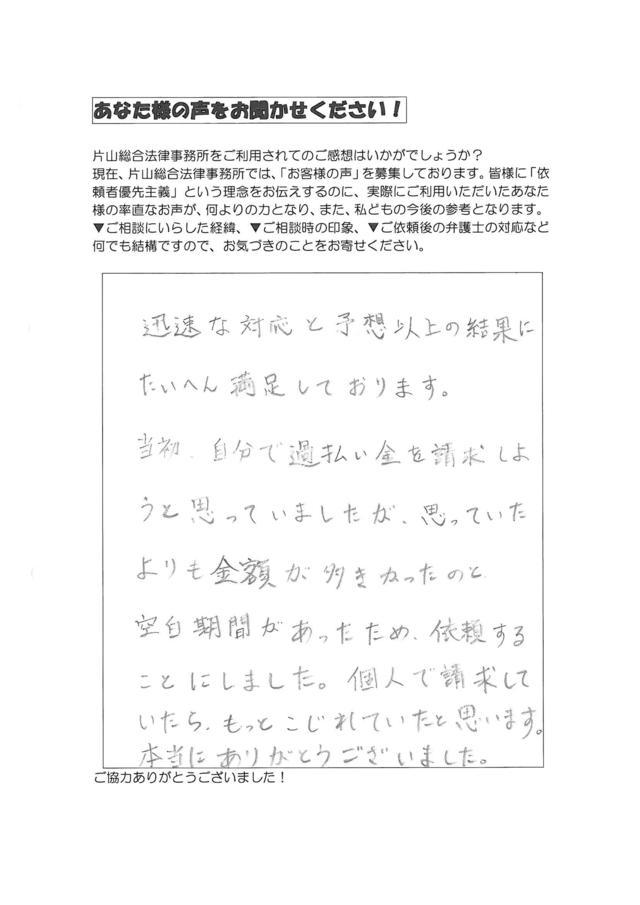 あなた様の声をお聞かせください！
片山総合法律事務所をご利用されてのご感想はいかがでしょうか？
現在、片山総合法律事務所では、「お客様の声」を募集しております。皆様に「依
頼者優先主義」という理念をお伝えするのに、実際にご利用いただいたあなた
様の率直なお声が、何よりの力となり、また、私どもの今後の参考となります。
▼ご相談にいらした経緯、▼ご相談時の印象、▼ご依頼後の弁護士の対応など
何でも結構ですので、お気づきのことをお寄せください。
迅速な対応と予想以上の結果に
たいへん満足しております。
当初、自分で過払い金を請求しよ
うと思っていましたが、思っていた
よりも金額が多きかったのと
空白期間があったため、依頼する
ことにしました。個人で請求して
いたら、もっとこじれていたと思います。
本当にありがとうございました。
ご協力ありがとうございました！